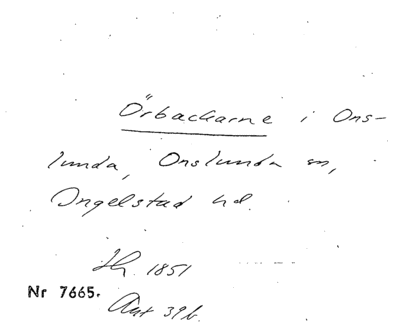 Örbackarne i Ons-
lunda, Onslunda sn,
Ingelstad hd.
1851
Nr 7665.
Ant 39 b.